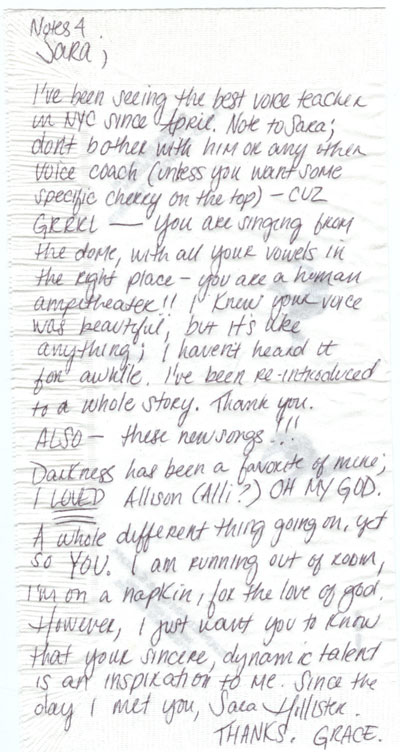 Notes 4
Sara,
I've been seeing the best voice teacher
in NYC since April. Note to Sara;
don't bother with him or any other
voice coach (unless you want some
specific cherry on the top) - CUZ
GRRRL — you are singing from
the dome, with all your vowels in
the right place - you are a human
ampitheater!! I knew your voice
was beautiful, but it's like
anything; I haven't heard it
for awhile. I've been re-introduced
to a whole story. Thank you.
ALSO - these new songs!!!
Darkness has been a favorite of mine;
I LOVED Allison (Alli?) OH MY GOD.
A whole different thing going on, yet
so YOU. I am running out of room,
I'm on a napkin, for the love of god.
However, I just want you to know
that your sincere, dynamic talent
is an inspiration to me. Since the
day I met you, Sara Hillister.
THANKS. GRACE.